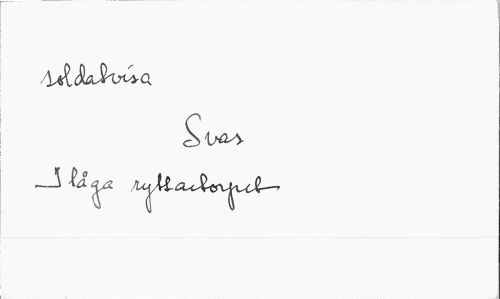 soldatvisa
Svas
I låga ryttartorpet